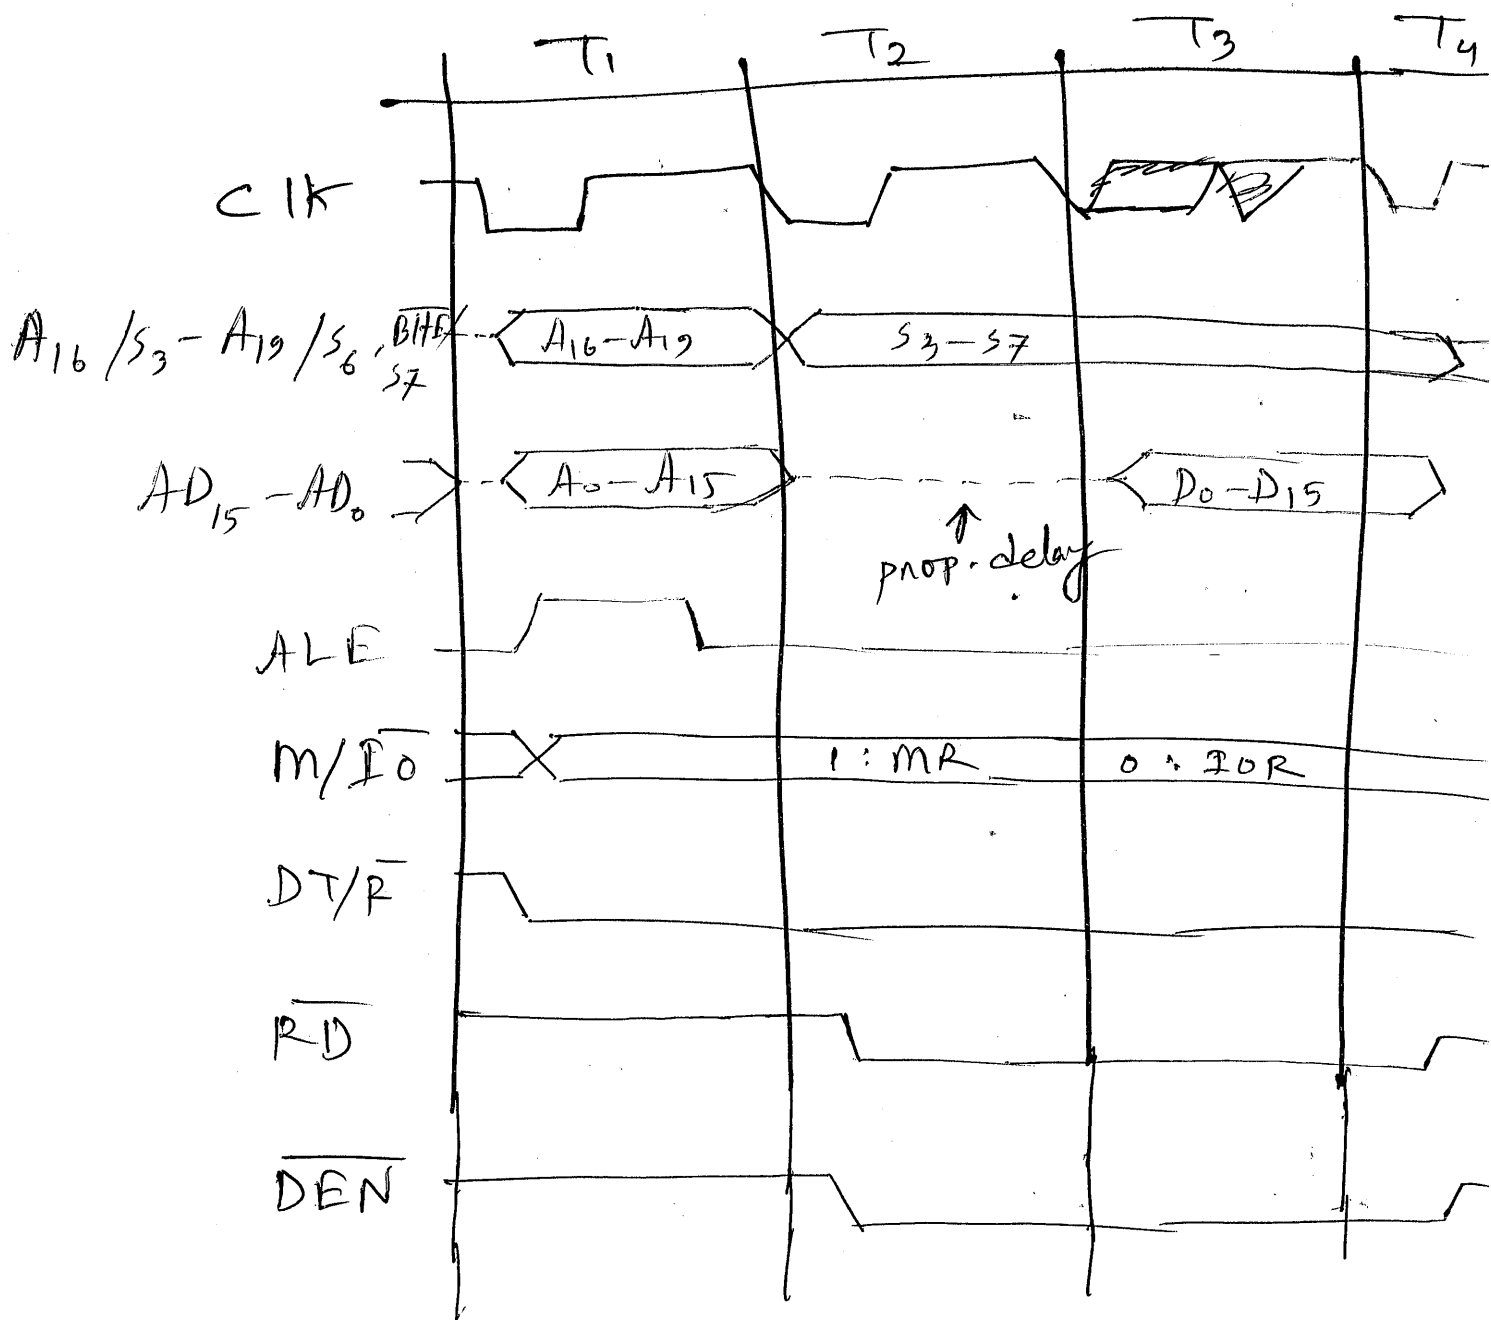 T1 T2 T3 T4
CLK
A16/S3-A19/S6, B̅H̅E̅/S7 A16-A19 S3-S7
AD15-AD0 A0-A15 D0-D15
↑
prop. delay
ALE
M/I̅O̅ 1 : MR 0 : IOR
DT/R̅
R̅D̅
D̅E̅N̅